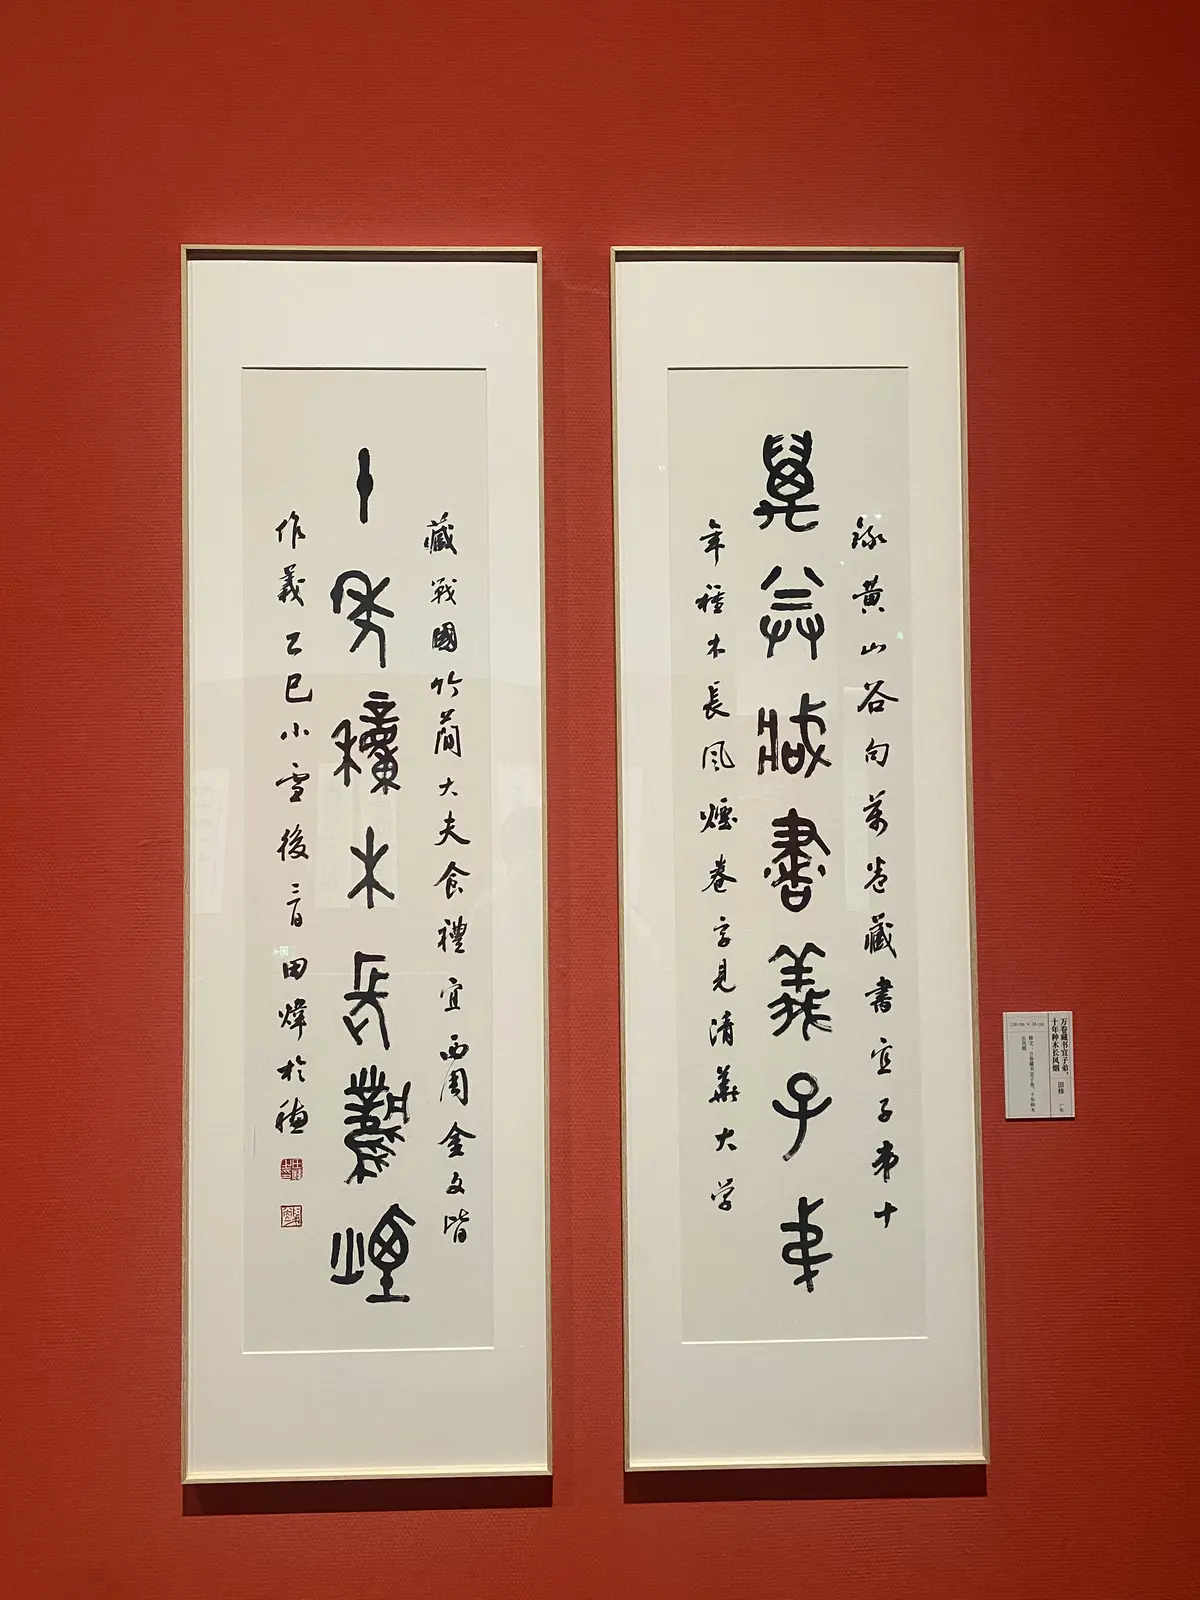 錄黃山谷句萬卷藏書宜子弟十
萬卷藏書義子弟
年種木長風煙卷字見清華大学
藏戰國竹簡大夫食禮宜西周金文皆
十年種木長風煙
作義乙巳小雪後三日田煒於穗
万卷藏书宜子弟，
十年种木长风烟
田炜
释文：万卷藏书宜子弟，十年种木
长风烟